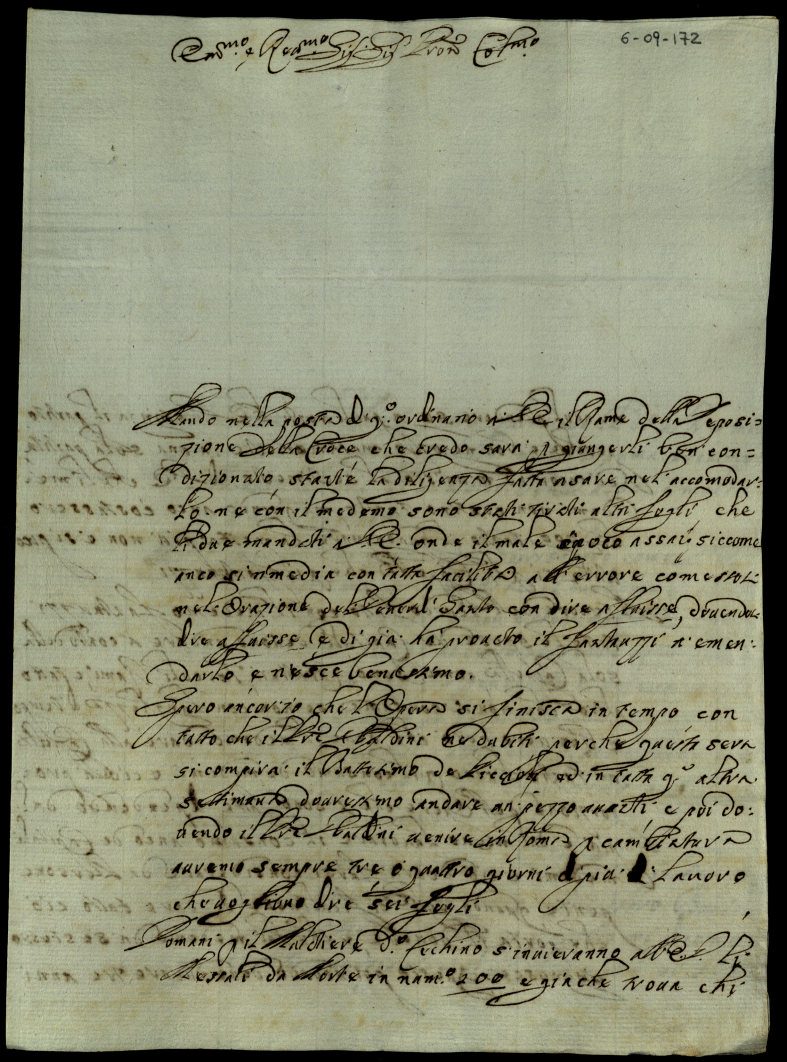 6-09-172
Em.mo e Reu.mo Sig.r Sig.r Pron. Col.mo
Mando nella posta di q.o ordinario a V.E. il Rame della Deposi=
zione della Croce che credo sarà p giungerli ben con=
dizionato stante la diligenza fatta usare nel accomodar=
lo, ne con il medemo sono stati tirati altri fogli che
li due mandati a V.E. onde il male è poco assai siccome
anco si rimedia con tutta facilità all'errore
nel Orazione del Venerdì Santo con dire afluisse, douendo
dire afluxisse, e di gia ha il Fantauzzi
darlo e riesce benissimo.
Spero ancor io che l'Opera si finisca in tempo con
tutto che il Pre Baldini ne dubiti perche questa sera
si compira il Battesimo de Piccoli ed in tutta q.a altra
settimana douressimo andare un pezzo auanti e poi do=
uendo il Pre Baldini uenire in Roma p
auremo sempre tre o quattro giorni di piu di lauoro
che uogliono dire sei fogli
Domani p il d.o Cechino s'inuieranno a V.E. li
Messali da Morte in num.o 200 e giache troua chi